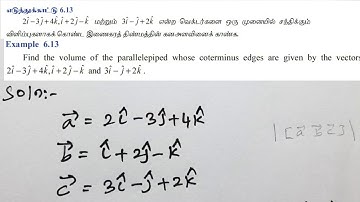 எடுத்துக்காட்டு 6.13
2î−3ĵ+4k̂, î+2ĵ−k̂ மற்றும் 3î−ĵ+2k̂ என்ற வெக்டர்களை ஒரு முனையில் சந்திக்கும்
விளிம்புகளாகக் கொண்ட இணைகரத் திண்மத்தின் கனஅளவினைக் காண்க.
Example 6.13
Find the volume of the parallelepiped whose coterminus edges are given by the vectors
2î−3ĵ+4k̂, î+2ĵ−k̂ and 3î−ĵ+2k̂.
Soln:-
a⃗ = 2î−3ĵ+4k̂
b⃗ = î+2ĵ−k̂
|[a⃗ b⃗ c⃗]|
c⃗ = 3î−ĵ+2k̂